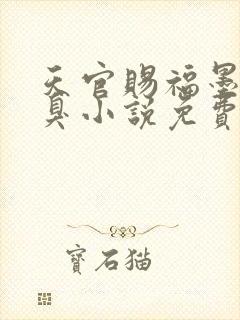 天官賜福墨
臭小說免費
寶石猫